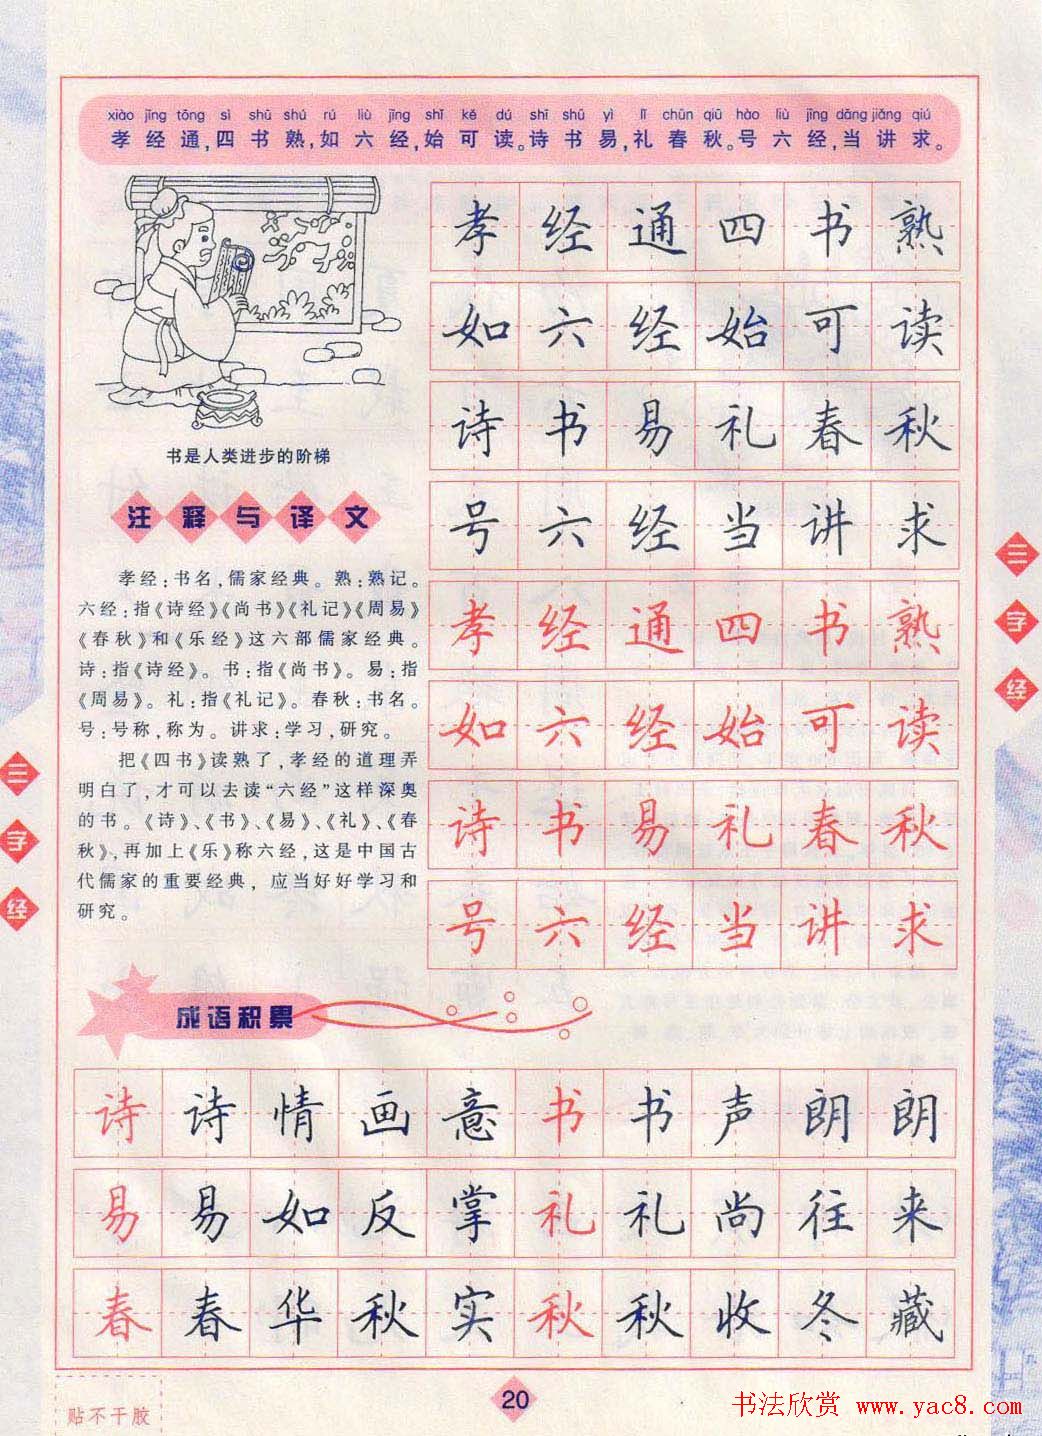 xiào jīng tōng sì shū shú rú liù jīng shǐ kě dú shī shū yì lǐ chūn qiū hào liù jīng dāng jiǎng qiú
孝经通,四书熟,如六经,始可读。诗书易,礼春秋。号六经,当讲求。
孝经通四书熟
如六经始可读
诗书易礼春秋
号六经当讲求
孝经通四书熟
如六经始可读
诗书易礼春秋
号六经当讲求
书是人类进步的阶梯
注释与译文
孝经:书名,儒家经典。熟:熟记。
六经:指《诗经》《尚书》《礼记》《周易》
《春秋》和《乐经》这六部儒家经典。
诗:指《诗经》。书:指《尚书》。易:指
《周易》。礼:指《礼记》。春秋:书名。
号:号称,称为。讲求:学习,研究。
把《四书》读熟了,孝经的道理弄
明白了,才可以去读“六经”这样深奥
的书。《诗》、《书》、《易》、《礼》、《春
秋》,再加上《乐》称六经,这是中国古
代儒家的重要经典,应当好好学习和
研究。
三字经
三字经
成语积累
诗诗情画意书书声朗朗
易易如反掌礼礼尚往来
春春华秋实秋秋收冬藏
20
贴不干胶
书法欣赏 www.yac8.com